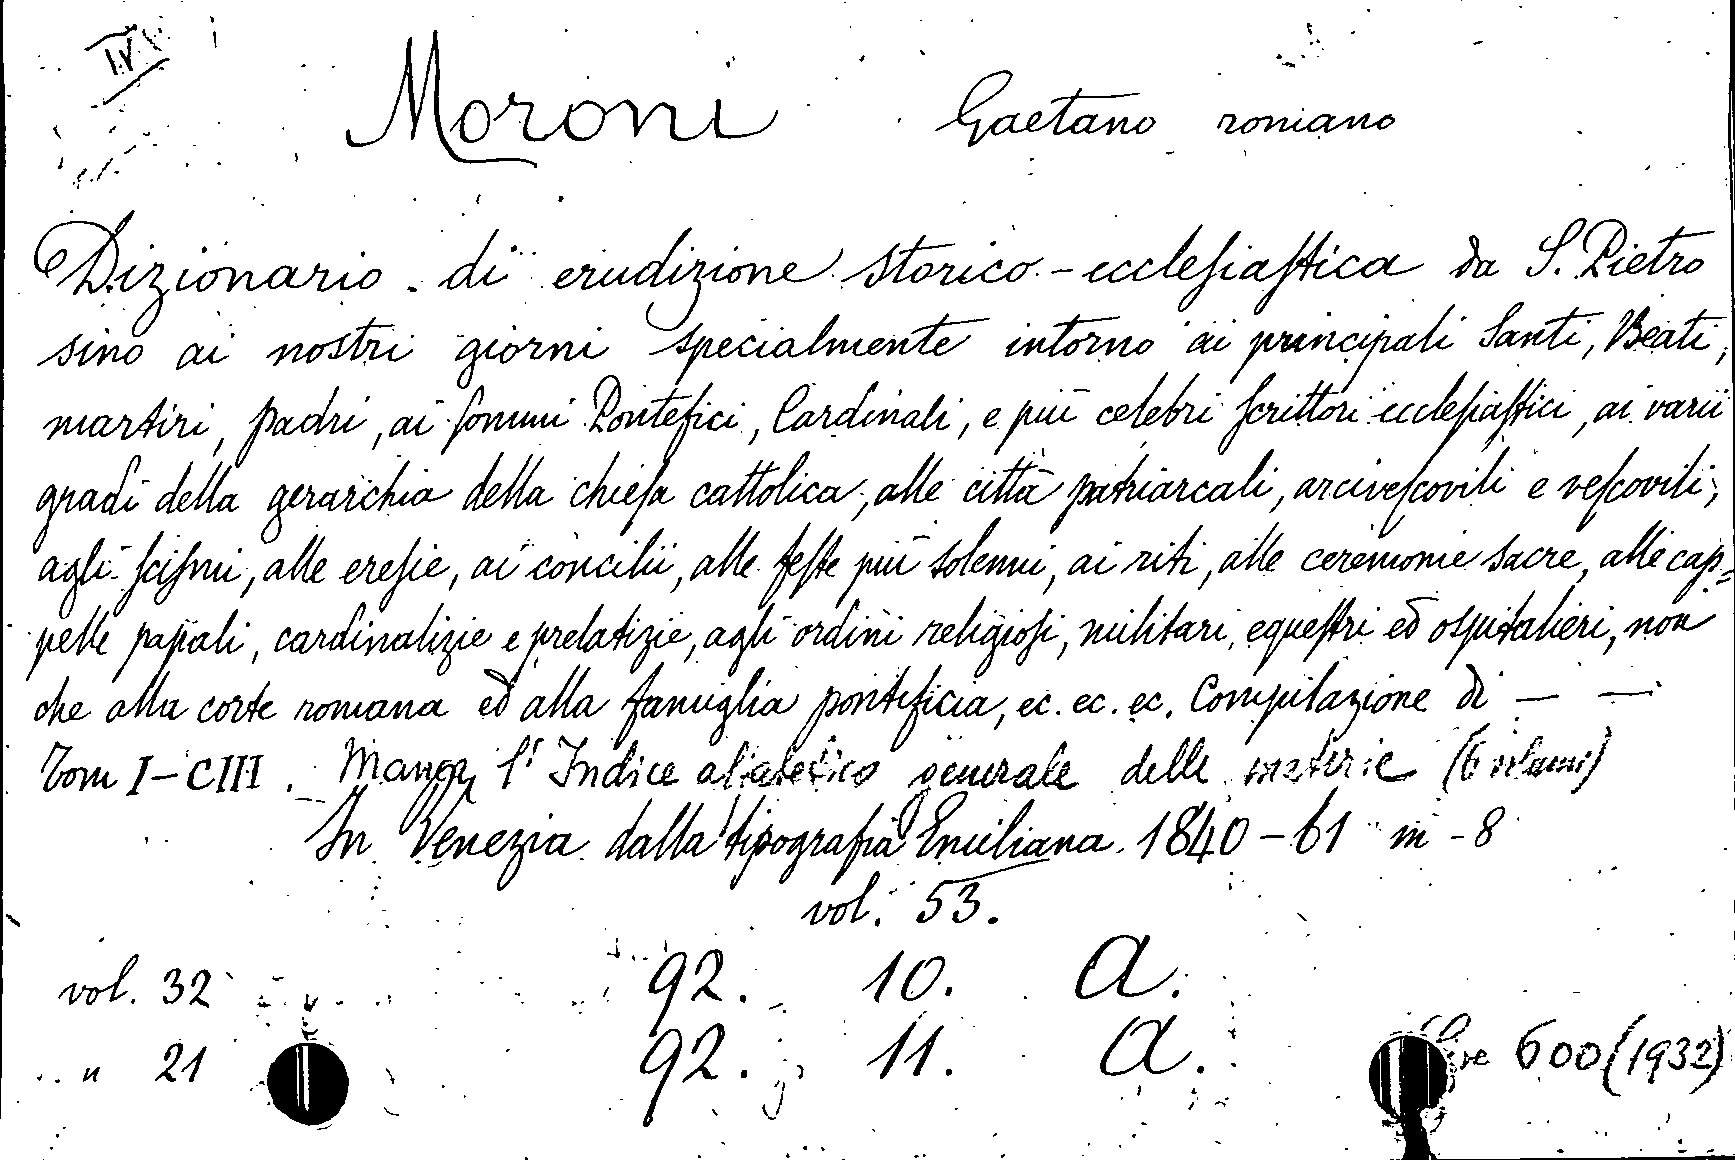 IV
Moroni Gaetano romano
Dizionario di erudizione storico-ecclesiastica da S. Pietro
sino ai nostri giorni specialmente intorno ai principali Santi, Beati,
martiri, padri, ai sommi Pontefici, Cardinali, e più celebri scrittori ecclesiastici, ai varii
gradi della gerarchia della chiesa cattolica, alle città patriarcali, arcivescovili e vescovili,
agli scismi, alle eresie, ai concilii, alle feste più solenni, ai riti, alle ceremonie sacre, alle cap=
pelle papali, cardinalizie e prelatizie, agli ordini religiosi, militari, equestri ed ospitalieri, non
che alla corte romana ed alla famiglia pontificia, ec. ec. ec. Compilazione di — —
Tom I-CIII. Manca l'Indice alfabetico generale delle materie (6 volumi)
In Venezia dalla tipografia Emiliana 1840-61 in-8
vol. 53.
vol. 32 92. 10. A.
" 21 92. 11. A. Lire 600 (1932)